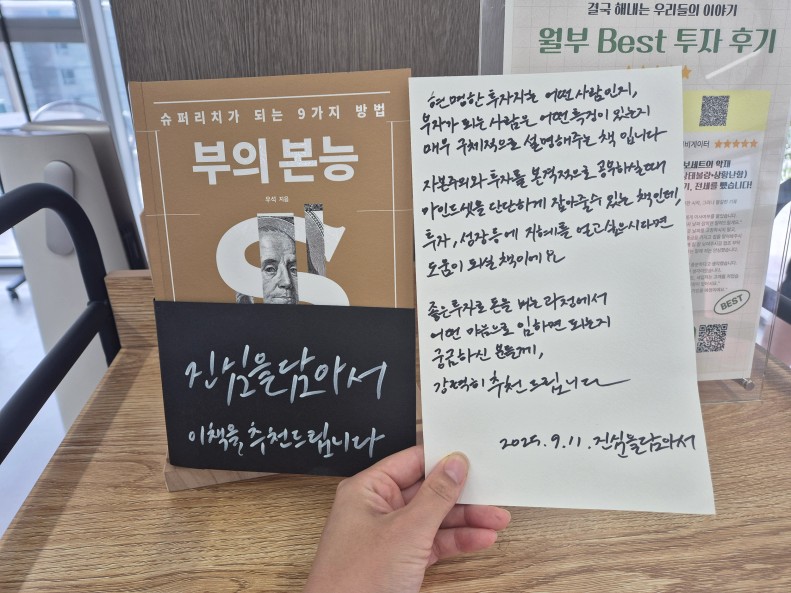 결국 해내는 우리들의 이야기
월부 Best 투자 후기
슈퍼리치가 되는 9가지 방법
부의 본능
우석 지음
진심을담아서
이책을, 추천드립니다
현명한 투자자는 어떤 사람인지,
부자가 되는 사람은 어떤 특징이 있는지
매우 구체적으로 설명해주는 책 입니다
자본주의와 투자를 본격적으로 공부하실때
마인드셋을 단단하게 잡아줄수 있는 책인데,
투자, 성장등에 지혜를 얻고싶으시다면
도움이 되실 책이에요
좋은투자로 돈을 버는 과정에서
어떤 마음으로 임하면 되는지
궁금하신 분들께,
강력히 추천드립니다
2025.9.11. 진심을담아서
BEST